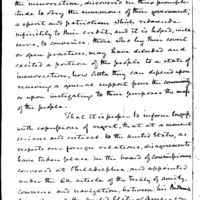 the insurrection, discovered in their prompti-
tude to obey the summons of their government,
a spirit and patriotism which redounds
infinitely to their credit, and it is hoped, will
serve to convince, those who by their covert
or open practices, may have deluded and
excited a portion of the people to a state of
insurrection, how little they can depend upon
receiving a general support from the community
or upon instigating to their purposes the mass
of the people.
That it is proper to inform Congress,
with expressions of regret, that at a
serious and critical to the United States, as
respects our foreign relations, disagreements
have taken place in the board of commissioners
convened at Philadelphia, and appointed
under the 6th article of the treaty of amity,
commerce and navigation, between his Britannic
the United States of America